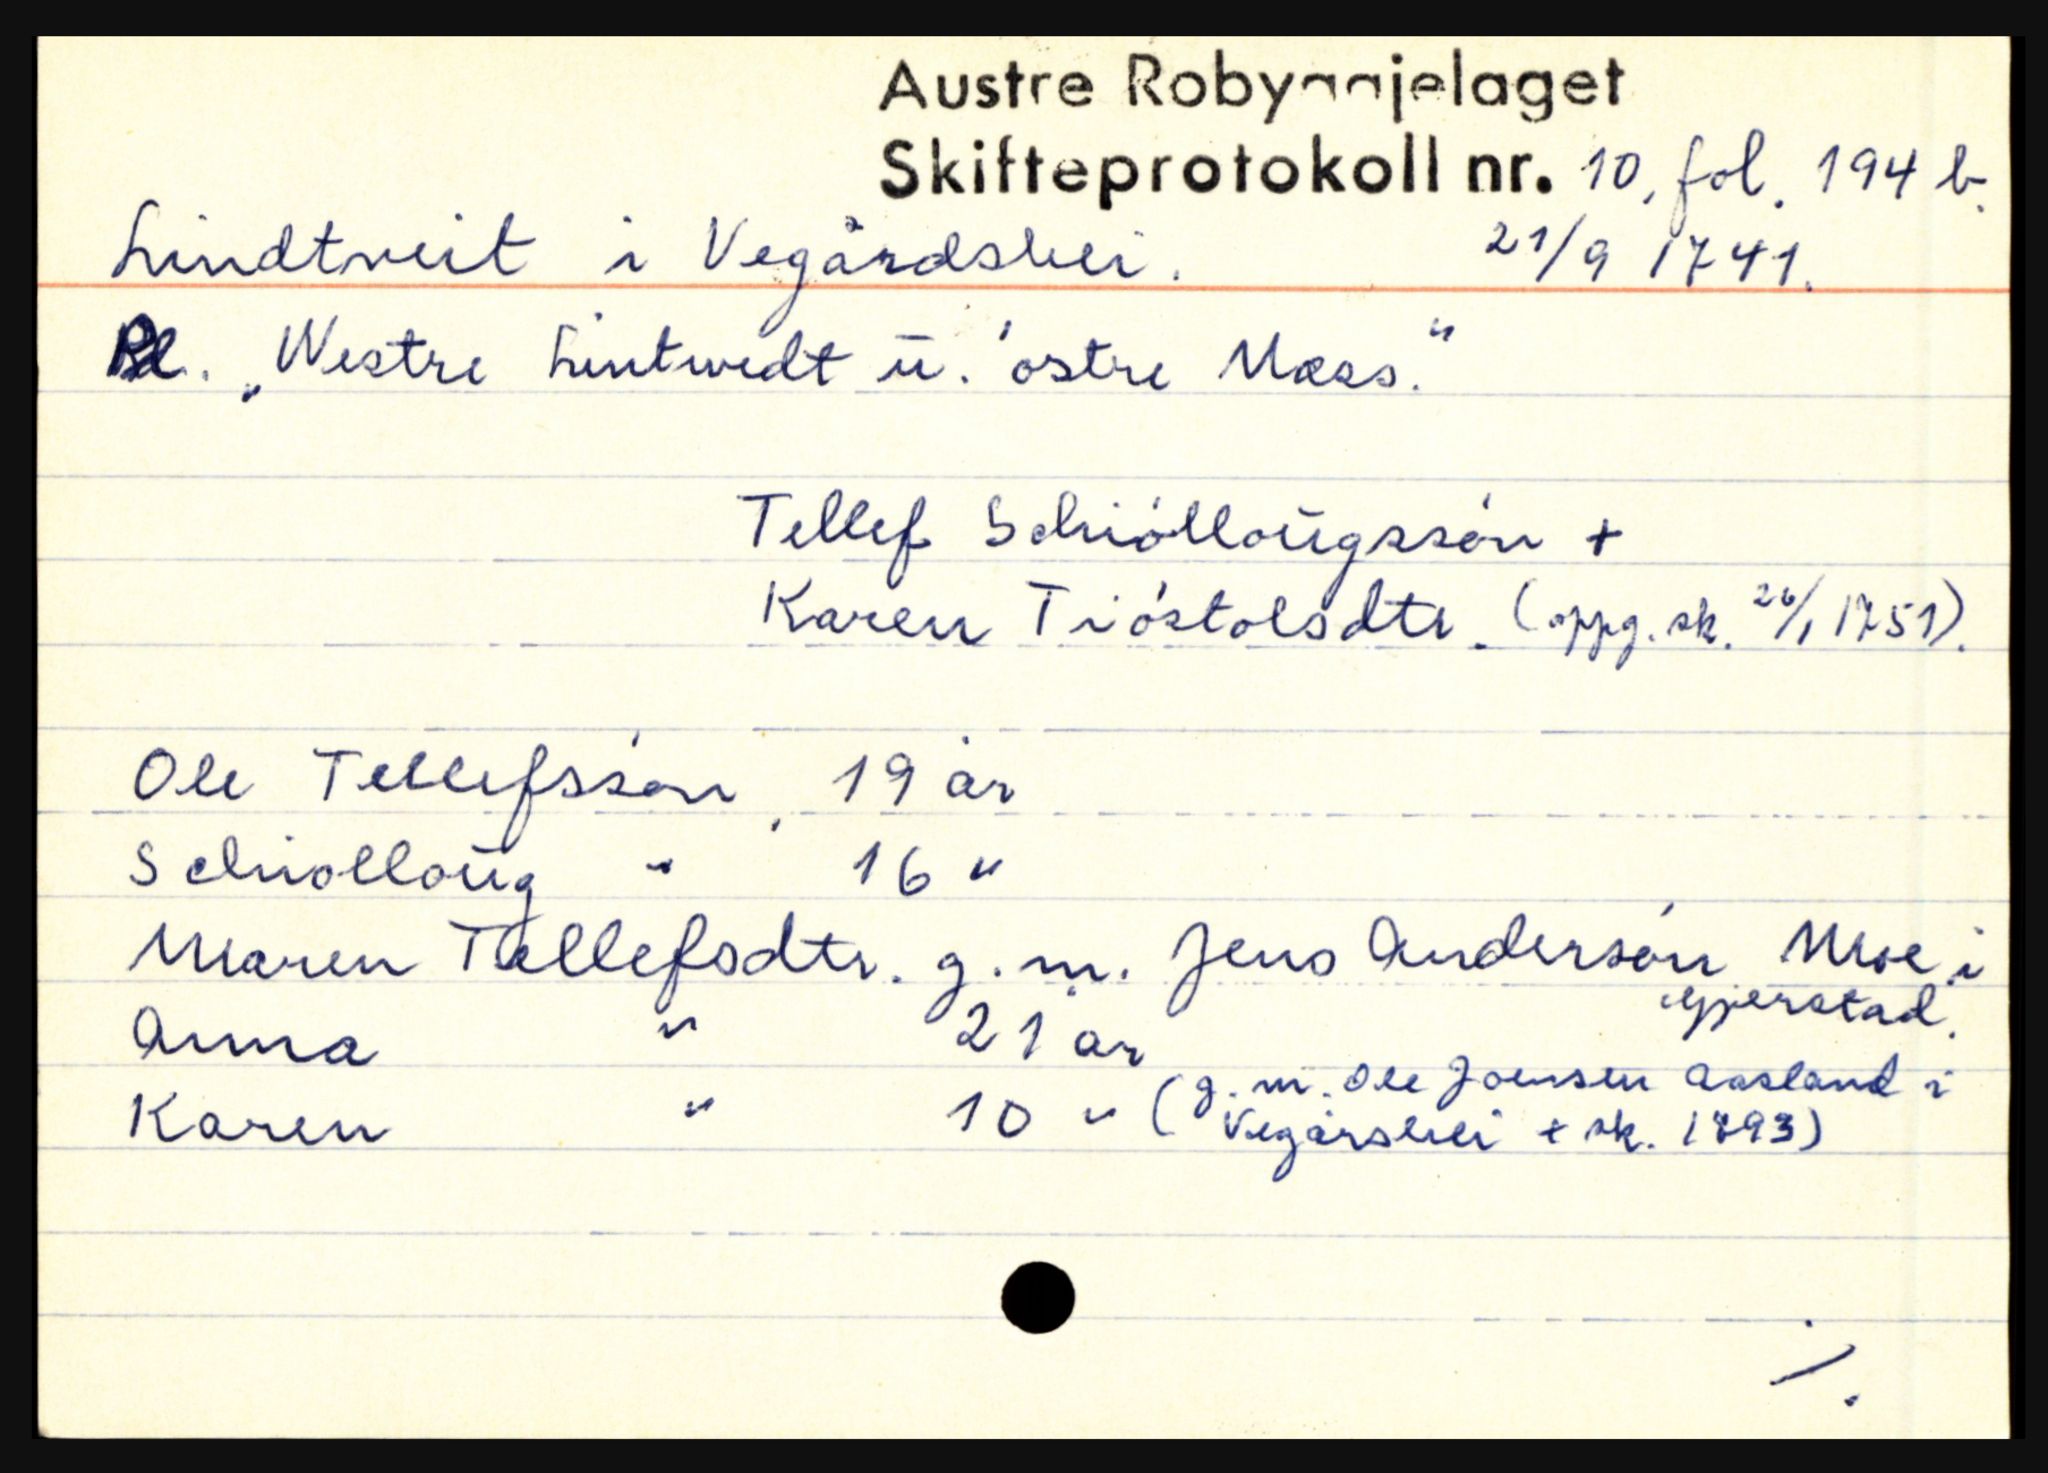 Austre Robyggjelaget
Skifteprotokoll nr. 10, fol. 194 b.
Lindtveit i Vegårdshei. 21/9 1741.
Pl. „Westre Lintwedt ū. óstre Mæss.“
Tellef Schiólloūgssón +
Karen Tióstolsdtr. (oppg. sk. 26/1 1751).
Ole Tellefssón, 19 år
Schiolloūg " 16 "
Maren Tellefsdtr. g. m. Jens Andersón Moe i
Gjerstad.
Anna " 21 år
Karen " 10 " (g. m. Ole Joensen Aasland i
Vegårshei + sk. 1793)
./.